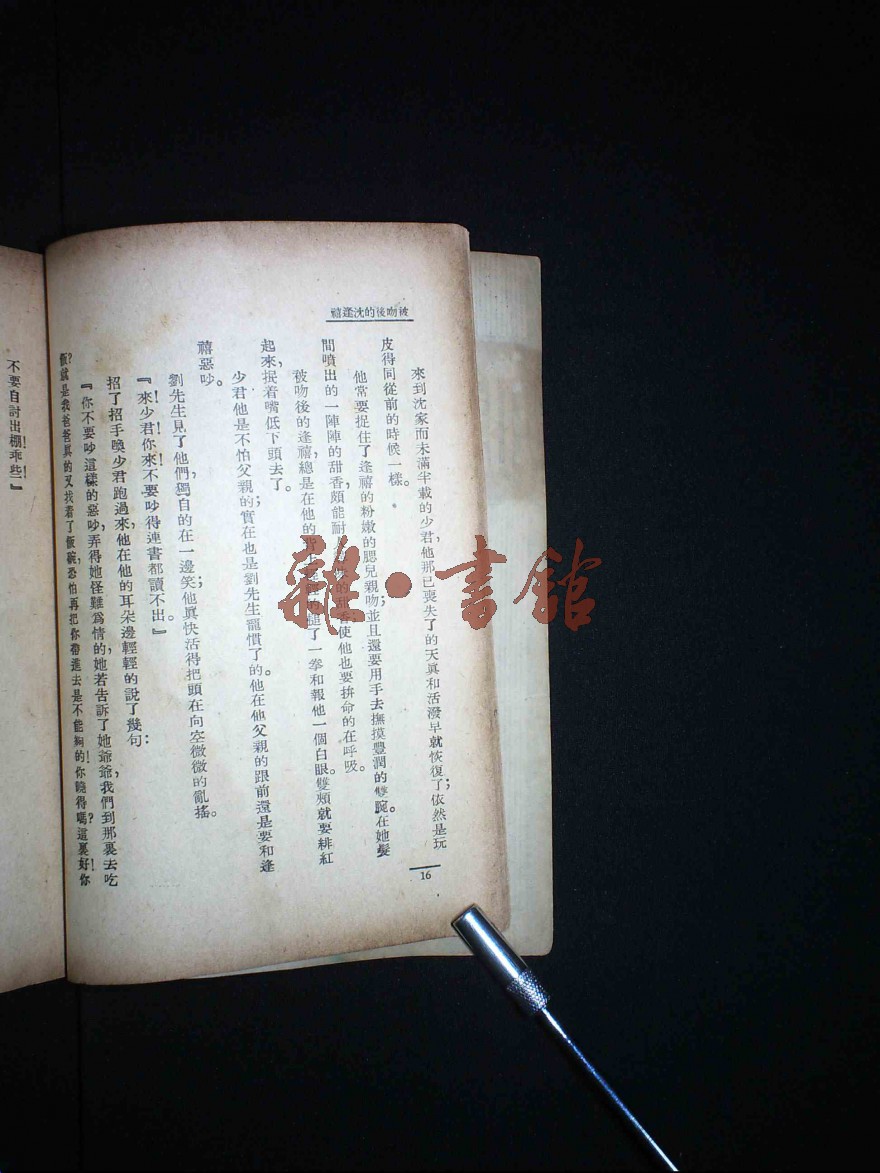 被吻後的沈逢禧
來到沈家而未滿半載的少君，他那已喪失了的天眞和活潑早就恢復了；依然是玩
皮得同從前的時候一樣。
他常要捉住了逢禧的粉嫩的腮兒親吻；並且還要用手去撫摸豐潤的雙腕。在她髮
間噴出的一陣陣的甜香頗能耐 的甜香使他也要拚命的在呼吸。
被吻後的逢禧總是在他的背上 的搥了一拳和報他一個白眼。雙頰就要緋紅
起來，抿着嘴低下頭去了。
少君他是不怕父親的；實在也是劉先生寵慣了的。他在他父親的跟前還是要和逢
禧惡吵。
劉先生見了他們，獨自的在一邊笑；他眞快活得把頭在向空微微的亂搖。
『來！少君！你來！不要吵得連書都讀不出。』
招了招手喚少君跑過來，他在他的耳朵邊輕輕的說了幾句：
『你不要吵這樣的惡吵，弄得她怪難爲情的，她若告訴了她爺爺，我們到那裏去吃
飯？就是我爸爸眞的又找着了飯碗，恐怕再把你帶進去是不能夠的！你曉得嗎？這裏好！你
不要自討出棚！乖些！』
16
雜·書館